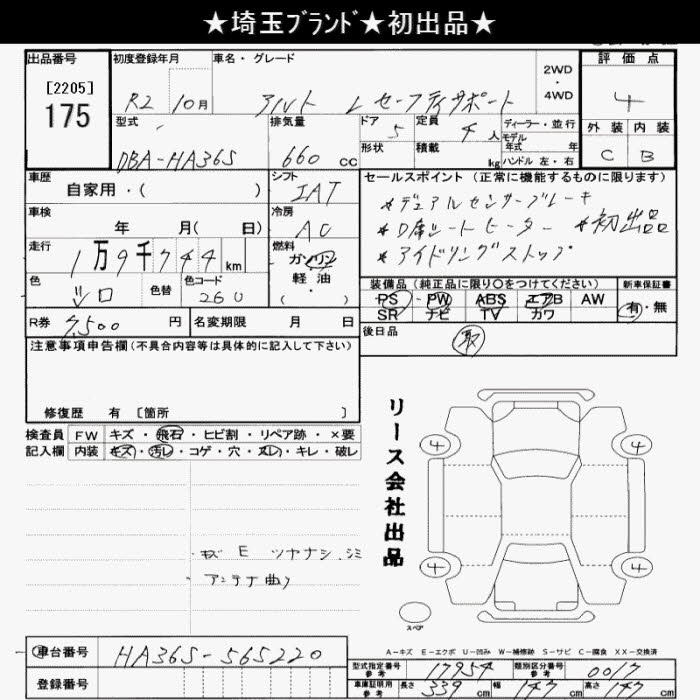 ★埼玉ﾌﾞﾗﾝﾄﾞ★初出品★
出品番号 初度登録年月 車名・グレード 2WD・4WD 評価点
[2205]
175
R2 10月 アルト L セーフティサポート 4
型式 排気量 ドア 定員 ディーラー・並行 外装 内装
5 4人 モデル年式 年
DBA-HA36S 660 CC 形状 積載 kg ハンドル 左・右 C B
車歴 シフト セールスポイント（正常に機能するものに限ります）
自家用・( ) IAT
車検 冷房 ＊デュアルセンサーブレーキ
年 月( 日) AC ＊D席シートヒーター ＊初出品
走行 燃料 ＊アイドリングストップ
1万9千744km ガソリン
軽油
・
( )
色 色替 色コード 装備品（純正品に限り○をつけてください） 新車保証書
シロ 260 PS PW ABS エアB AW 有・無
SR ナビ TV カワ
R券 7,500円 名変期限 月 日 後日品 取
注意事項申告欄（不具合内容等は具体的に記入して下さい）
修復歴 有 〔箇所 〕
検査員 FW キズ・飛石・ヒビ割・リペア跡・×要
記入欄 内装 キズ・汚レ・コゲ・穴・スレ・キレ・破レ
リース会社出品
4 4
・キズ E ツヤナシ.シミ
・アンテナ曲り
4 4
スペア
A－キズ E－エクボ U－凹み W－補修跡 S－サビ C－腐食 XX－交換済
車台番号 HA36S-565220
型式指定番号 参考 17954 類別区分番号 参考 0017
登録番号 車庫証明用 参考 長さ 339 cm 幅 147 cm 高さ 147 cm